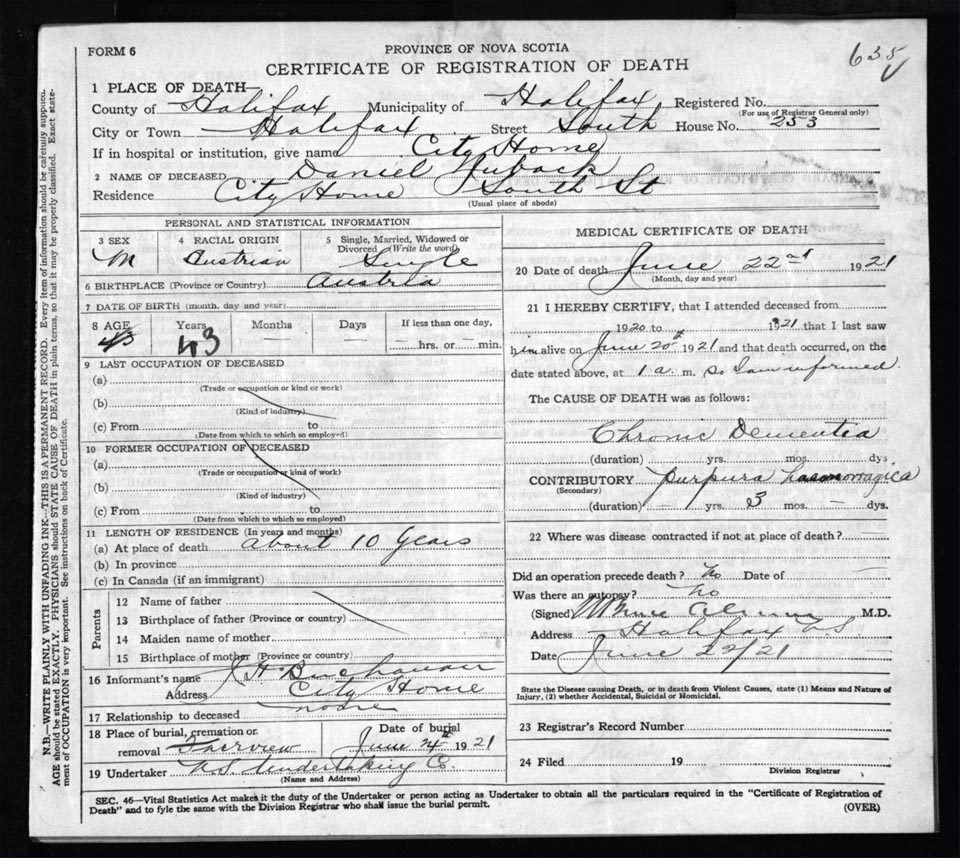 635
FORM 6
PROVINCE OF NOVA SCOTIA
CERTIFICATE OF REGISTRATION OF DEATH
1 PLACE OF DEATH—
County of Halifax Municipality of Halifax Registered No.
(For use of Registrar General only)
City or Town Halifax Street South House No. 253
If in hospital or institution, give name City Home
2 NAME OF DECEASED Daniel
Residence City Home South St
(Usual place of abode)
PERSONAL AND STATISTICAL INFORMATION
3 SEX
M
4 RACIAL ORIGIN
Austrian
5 Single, Married, Widowed or
Divorced (Write the word)
Single
6 BIRTHPLACE (Province or Country) Austria
7 DATE OF BIRTH (month, day and year)
8 AGE Years Months Days If less than one day,
43 43 — — — hrs. or — min.
9 LAST OCCUPATION OF DECEASED
(a)
(Trade or occupation or kind of work)
(b)
(Kind of industry)
(c) From to
(Date from which to which so employed)
10 FORMER OCCUPATION OF DECEASED
(a)
(Trade or occupation or kind of work)
(b)
(Kind of industry)
(c) From to
(Date from which to which so employed)
11 LENGTH OF RESIDENCE (In years and months)
(a) At place of death about 10 Years
(b) In province
(c) In Canada (if an immigrant)
Parents
12 Name of father
13 Birthplace of father (Province or country)
14 Maiden name of mother
15 Birthplace of mother (Province or country)
16 Informant's name J H Buchanan
Address City Home
17 Relationship to deceased none
18 Place of burial, cremation or Date of burial
removal Fairview June 24th 1921
19 Undertaker N.S. Undertaking Co.
(Name and Address)
MEDICAL CERTIFICATE OF DEATH
20 Date of death June 22nd 1921
(Month, day and year)
21 I HEREBY CERTIFY, that I attended deceased from
1920 to 1921 that I last saw
him alive on June 20th 1921 and that death occurred, on the
date stated above, at 1 a. m. so I am informed
The CAUSE OF DEATH was as follows:
Chronic Dementia
(duration) yrs. mos. dys
CONTRIBUTORY purpura haemorragica
(Secondary)
(duration) — yrs. 3 mos. — dys.
22 Where was disease contracted if not at place of death?
Did an operation precede death? No Date of
Was there an autopsy? No
(Signed) M.D.
Address Halifax N.S.
Date June 22/21
State the Disease causing Death, or in death from Violent Causes, state (1) Means and Nature of
Injury, (2) whether Accidental, Suicidal or Homicidal.
23 Registrar's Record Number
24 Filed 19
Division Registrar
SEC. 46—Vital Statistics Act makes it the duty of the Undertaker or person acting as Undertaker to obtain all the particulars required in the "Certificate of Registration of
Death" and to fyle the same with the Division Registrar who shall issue the burial permit.
(OVER)
N.B.—WRITE PLAINLY WITH UNFADING INK—THIS IS A PERMANENT RECORD. Every item of information should be carefully supplied.
AGE should be stated EXACTLY. PHYSICIANS should STATE CAUSE OF DEATH in plain terms, so that it may be properly classified. Exact state-
ment of OCCUPATION is very important. See instructions on back of Certificate.